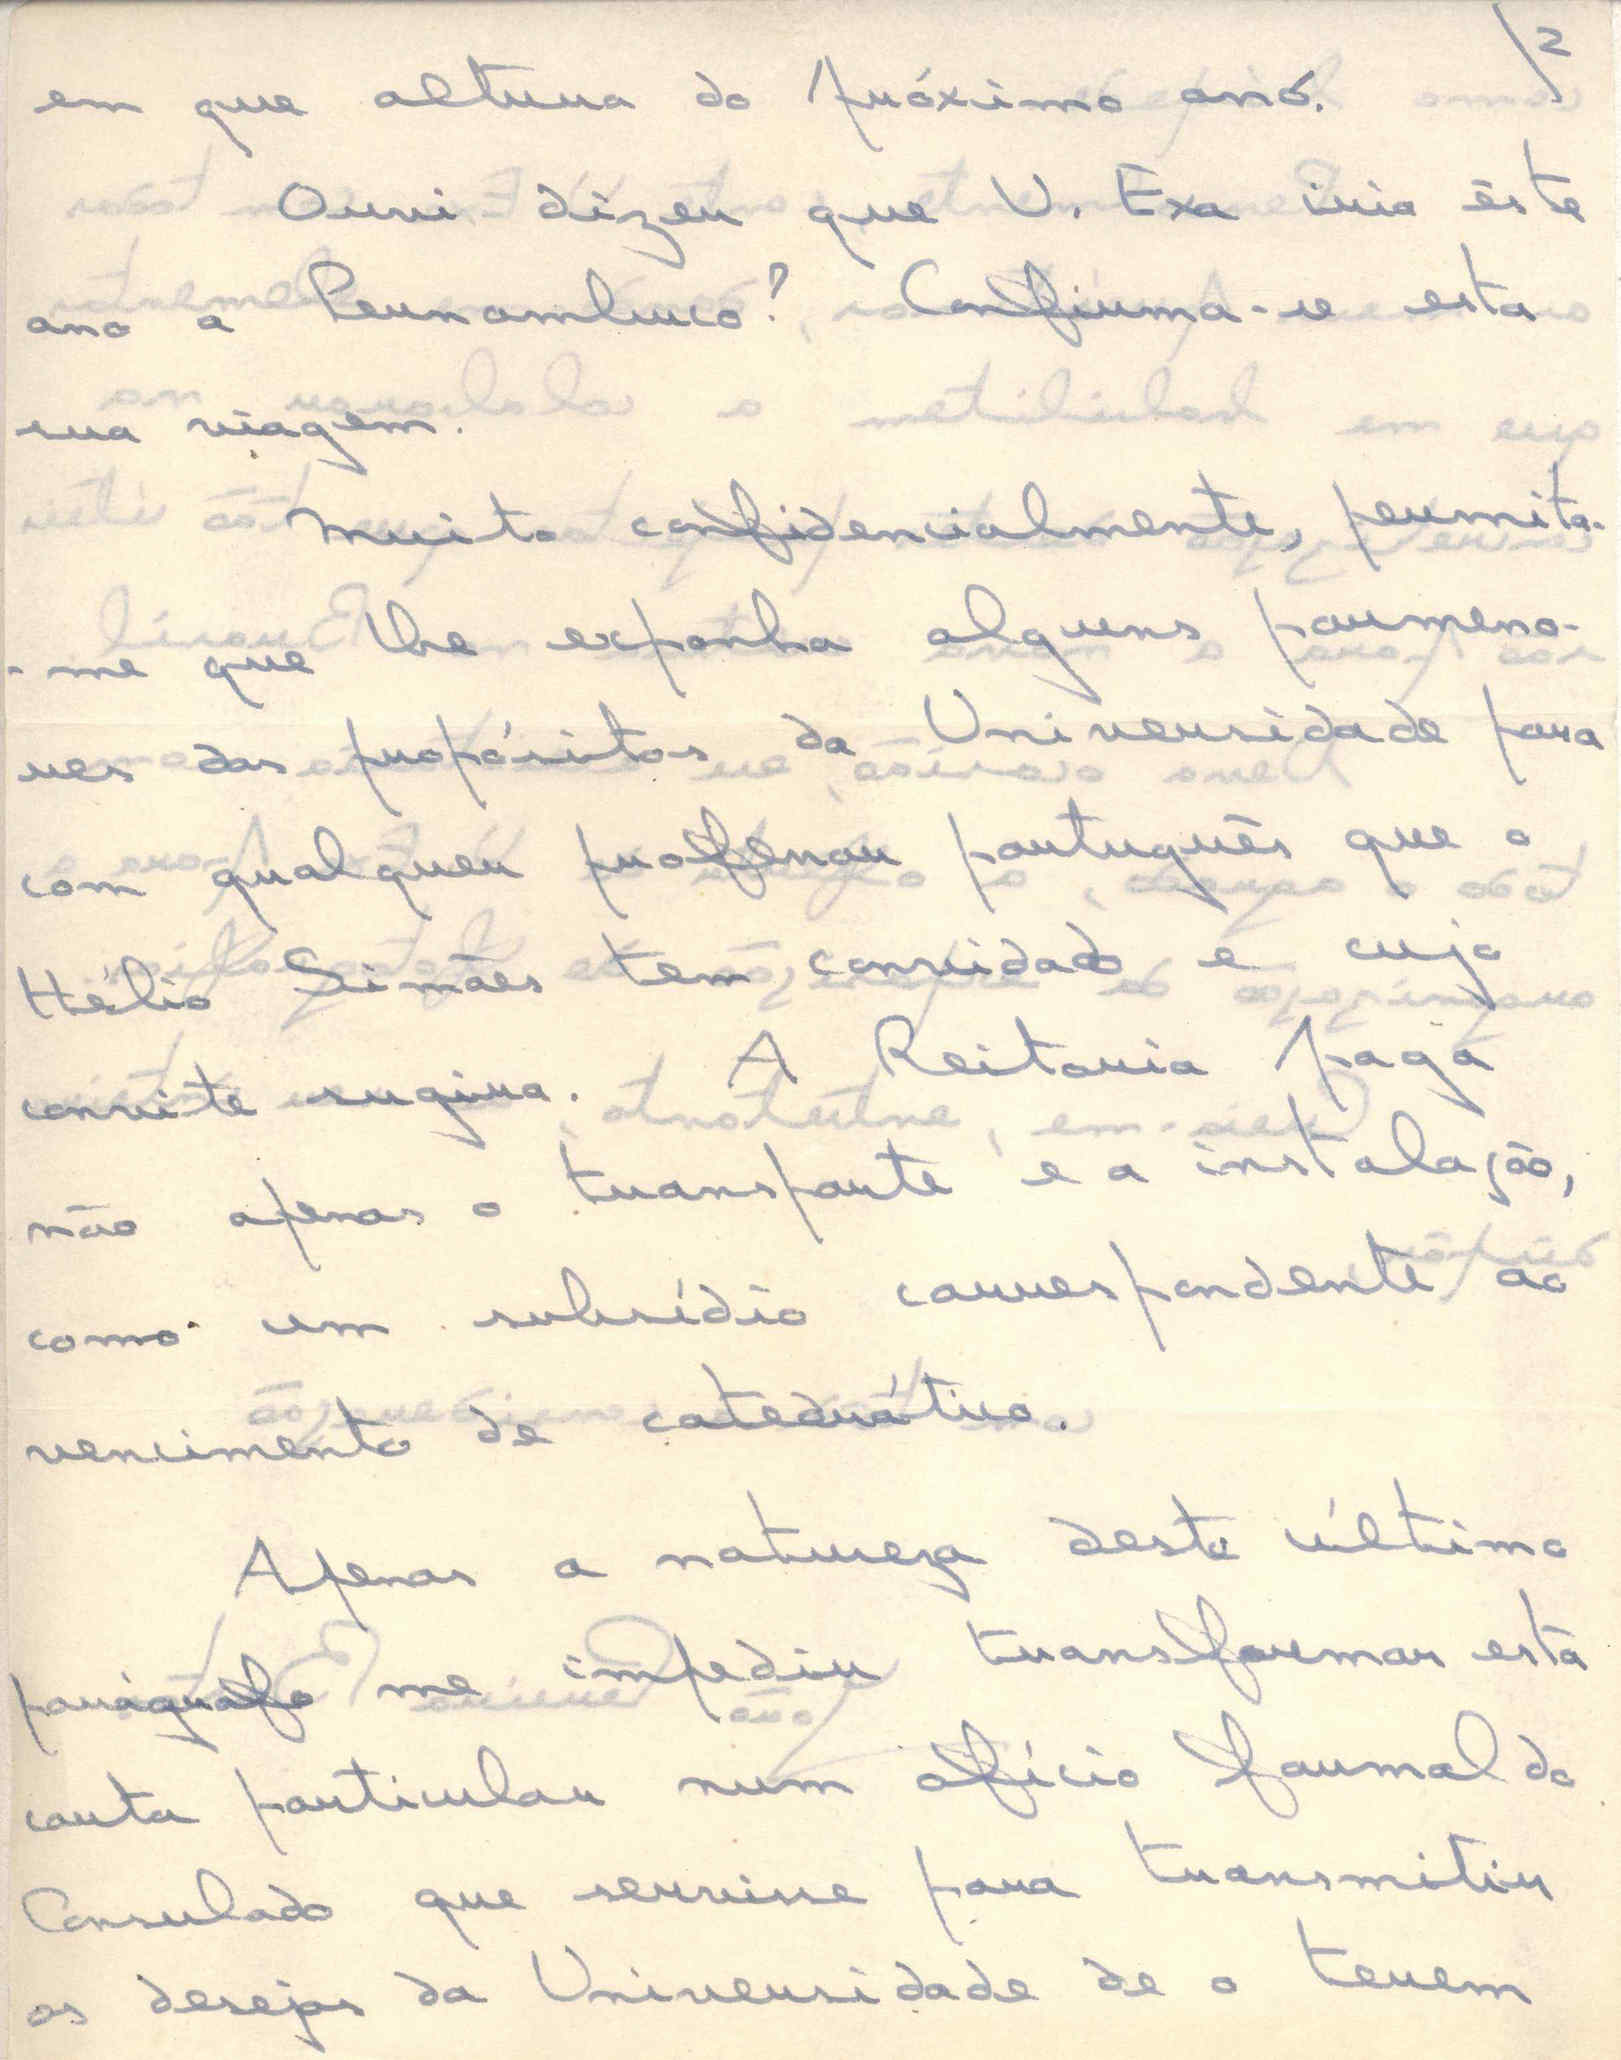 /2
em que altura do próximo ano.
Ouvi dizer que V. Exa iria êste
ano a Pernambuco? Confirma-se esta
sua viagem.
Muito confidencialmente, permita-
-me que lhe exponha alguns pormeno-
res dos propósitos da Universidade para
com qualquer professor português que o
Hélio Simões tem convidado e cujo
convite sugira. A Reitoria paga
não apenas o transporte e a instalação,
como um subsídio correspondente ao
vencimento de catedrático.
Apenas a natureza deste último
parágrafo me impediu transformar esta
carta particular num ofício formal do
Consulado que servisse para transmitir
os desejos da Universidade de o terem